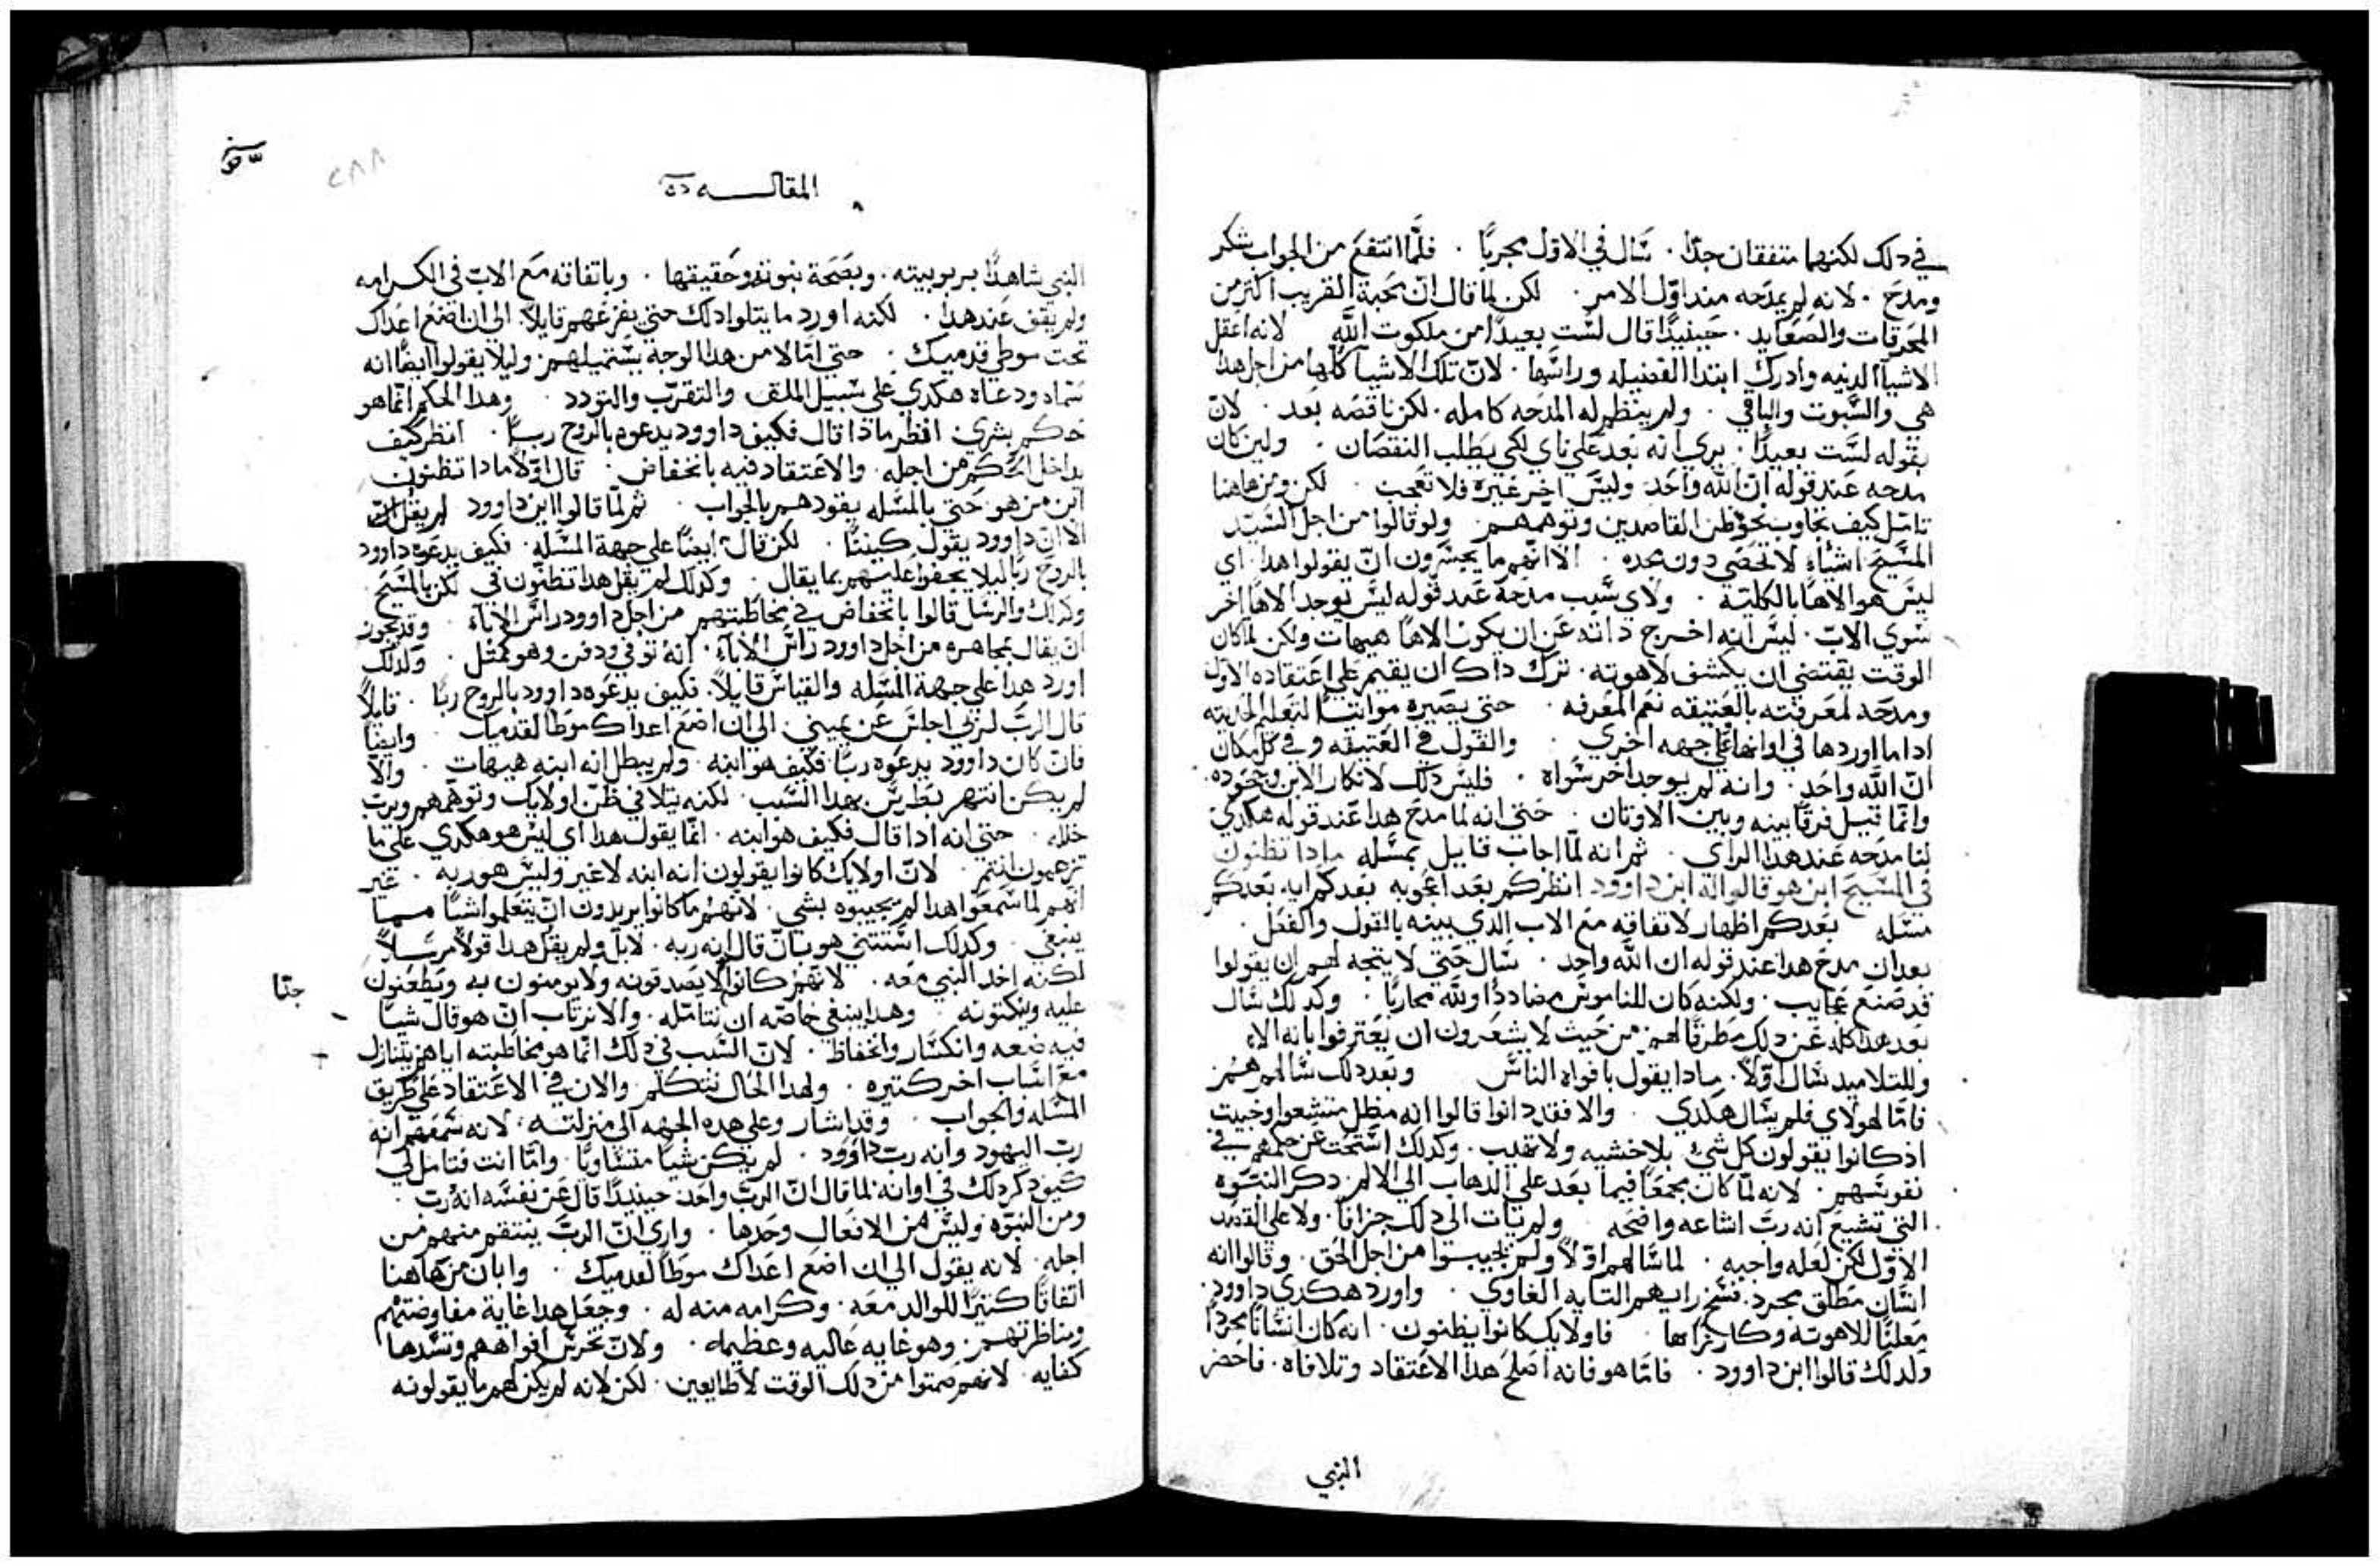 في دلك لكنهما متفقان جدًا . سال في الاول مجربًا . فلمَّا انتفع من الجواب شكر
ومدح . لانه لم يمدحه منداوّل الامر . لكن لما قال انّ محبة القريب اكترمن
المحرقات والصعايد . حينيدًا قال لست بعيدًا من ملكوت اللَّه لانه اعقل
الاشيآ الدنيه وادرك ابتدا الفضيله وراسها . لانّ تلك الاشيآ كلها من اجل هدا
هي والسبوت والباقي . ولم ينظم له المدحه كامله . لكن ناقصه بعد . لانّ
بقوله لست بعيدًا . يري انه بعد علي ناي لكي يطلب النقصان . ولين كان
مدحه عند قوله ان اللَّه واحد وليس اخر غيره فلا تعجب . لكن ومن هاهنا
تامّل كيف يجاوب نحو ظن القاصدين وتوهمهم ولو قالوا من اجل السيّد
المسيح اشياء لا تحصي دون مجده . الا انّهم ما يجسرون انّ يقولوا هدا اي
ليس هو الاهًا بالكليّة . ولاي سبب مدحه عند قوله ليس يوجد الاهًا اخر
سوي الاب . ليس انه اخرج داته عن ان يكون الاهًا هيهات ولكن لما كان
الوقت يقتضي ان يكشف لاهوته . ترك داك ان يقيم علي اعتقاده الاول
ومدحه لمعرفته بالعتيقه نعم المعرفه . حتي يصيره مواتيًا لتعليم الحديته
ادا ما اوردها في اوانها علي جهه اخري . والقول في العتيقه وفي كل مكان
انّ اللَّه واحد . وانه لم يوجد اخر سواه . فليس دلك لانكار الابن وجحوده .
وانّما قيل فرقًا بينه وبين الاوتان . حتي انه لما مدح هدا عند قوله هكدي
لنا مدحه عند هدا الراي . ثم انه لمّا اجاب قايل بمسله مادا تظنون
في المسيح ابن من هو قالوا له ابن داوود انظركم بعد اعجوبه بعدكم ايه بعدكم
مسله بعدكم اظهار لاتفاقه مع الاب الدي بينه بالقول والفعل .
بعد ان مدح هدا عند قوله ان اللَّه واحد . سال حتي لا يتجه لهم ان يقولوا
قد صنع عجايب . ولكنه كان للناموس مضاددًا وللَّه محاربًا . وكدلك سال
بعد هدا كله عن دلك مطرقًا لهم من حيث لا يشعرون ان يعترفوا بانه الاه
وللتلاميد سال اوّلاً . مادا يقول بافواه الناس وبعد دلك سالهم هُم
فامّا لهولاي فلم يسال هكدي . والا فقد دانوا قالوا انه مظل متشعوا وخبيت
اد كانوا يقولون كل شيء بلا خشيه ولا تهيب . وكدلك استحت عن حكمهم في
نفوسهم . لانه لمّا كان مجمعًا فيما بعد علي الدهاب الي الالم . دكر النبوه
التي تشيع انه ربّ اشاعه واضحه ولم يات الي دلك جزافًا . ولا علي القصد
الاوّل لكن لعله واجبه . لما سالهم اوّلاً ولم يجيبوا من اجل الحق . وقالوا انه
انسان مطلق مجرد . فسخ رايهم التايه الغاوي . واورد هكدي داوود .
معلنًا للاهوته وكارزًا بها فاولايك كانوا يظنون . انه كان انسانًا مجردًا
ولدلك قالوا ابن داوود . فامّا هو فانه اصلح هدا الاعتقاد وتلافاه . فاحضر
النبي
المقاله
النبي شاهدًا بربوبيته . وبصحة بنوته وحقيقتها . وباتفاقه مع الاب في الكرامه
ولم يقف عند هدا . لكنه اورد ما يتلوا دلك حتي يفزعهم قايلاً . الي ان اضع اعداك
تحت موطي قدميك . حتي امّا لا من هدا الوجه يستميلهم وليلا يقولوا ايضًا انه
سماه ودعاه هكدي علي سبيل الملق والتقرّب والتودد . وهدا الحكم انّما هو
حكم بشري انظر مادا قال فكيف داوود يدعوه بالروح ربًّا . انظر كيف
يداخل الحكم من اجله . والاعتقاد فيه بانخفاض . قال اوّلاً مادا تظنون
ابن من هو . حتي بالمسله يقودهم بالجواب . ثم لمّا قالوا ابن داوود لم يقل انه
الا انّ داوود يقول كيتنا . لكن قال ايضًا علي جهة المسله . فكيف يدعوه داوود
بالروح ربًا ليلا يجفوا عليهم بما يقال . وكدلك لم يقل هدا تظنّون في لكن بالمسيح .
وكدلك والرسل قالوا بانخفاض في مخاطبتهم من اجل داوود راس الابآء . وقد يجوز
ان يقال بمجاهره من اجل داوود راس الابآء . انه توفي ودفن وهو كمثل . وكدلك
اورد هدا علي جهة المسله والقياس قايلاً . فكيف يدعوه داوود بالروح ربًا . قايلاً
قال الربّ لربي اجلس عن يميني . الي ان اضع اعداك موطا لقدميك . وايضًا
فان كان داوود يدعوه ربًا . فكيف هو ابنه . ولم يبطل انه ابنه هيهات . والا
لم يكن انتهر بطرس بهدا السبب . لكنه يتلافي ظنّ اولايك وتوهمهم ويرتب
خلله . حتي انه ادا قال فكيف هو ابنه . انّما يقول هدا اي ليس هو هكدي علي ما
تزعمون انتم . لانّ اولايك كانوا يقولون انه ابنه لا غير وليس هو ربه . غير
انهم لما سمعوا هدا لم يجيبوه بشي . لانهم ما كانوا يريدون انّ يتعلموا شيًا مما
ينبغي . وكدلك استثني هو بانّ قال انه ربه . لابل ولم يقل هدا قولاً مرسلاً
لكنه اخد النبي معه . لانهم كانوا لا يصدقونه ولا يومنون به ويطعنون جدًا
عليه وينكتونه وهدا ينبغي خاصّه ان نتامّله . والا نرتاب انّ هو قال شيًا
فيه ضعه وانكسار وانخفاظ . لانّ السبب في دلك انّما هو مخاطبته اياهم بتنازل
مع اسباب اخر كتيره . ولهدا الحال نتكلم والان في الاعتقاد علي طريق
المسله والجواب . وقد اشار وعلي هده الجهه الي منزلته . لانه سمعهم انه
ربّ اليهود وانه ربّ داوود . لم يكن شيًا متساويًا . وامّا انت فتامل لي
كيف دكر دلك في اوانه لما قال انّ الربّ واحد حينيدًا قال عن نفسه انه ربّ .
ومن النبوّه وليس من الافعال وحدها . واري انّ الربّ ينتقم منهم من
اجله . لانه يقول الي ان اضع اعداك موطا لقدميك . وابان من هاهنا
اتفاقًا كتيرًا للوالد معه . وكرامه منه له . وجعل هدا غاية مفاوضتهم
ومناظرتهم . وهو غايه عاليه وعظيمه . ولانّ تخرس افواههم وتسدها
كفايه . لانهم صمتوا من دلك الوقت لا طايعين . لكن لانه لم يكن لهم ما يقولونه